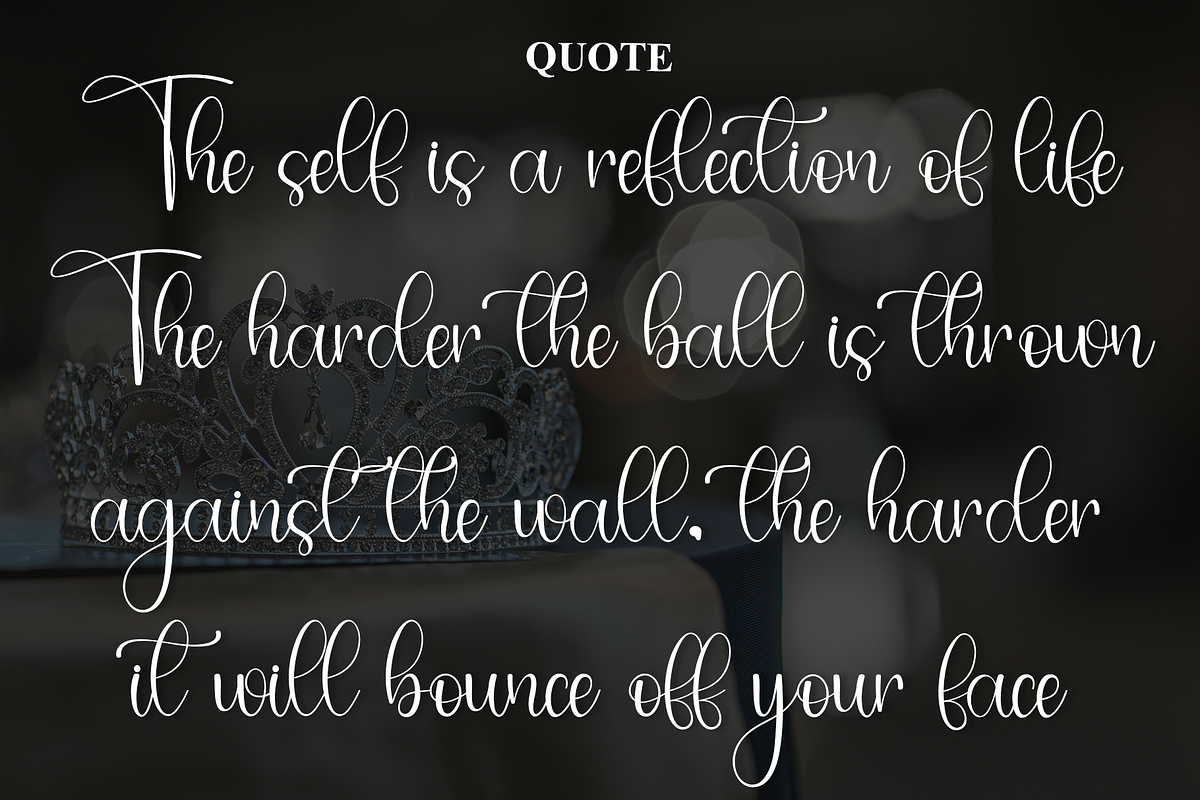 QUOTE
The self is a reflection of life
The harder the ball is thrown
against the wall, the harder
it will bounce off your face